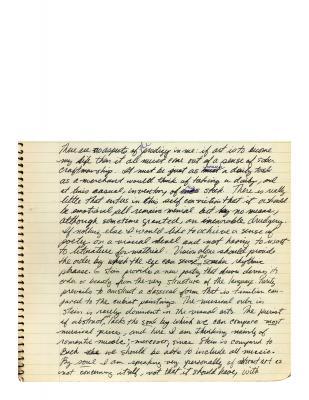 There are no aspects of finding in me: if art is to become
my life then it all must come out of a sense of order
craftsmanship. It must be just as much a daily task
as a merchant would think of taking a daily, not
at this casual, inventory of stock. There is really
little that enters in this self conviction that it should
be emotional all remain mental but by no means,
although sometime granted, an drudgery.
If nothing else I would like to achieve a sense of
poetry on a visual level and not having to resort
to literature for material. Vision alone should provide
the order by which the eye can sense some rhythmic
phrase. G. Stein provides a new poetry that draws its
order or beauty from the very structure of the language
prevails to construct a classical form that is familiar com-
pared to the cubist paintings. The musical order in
Stein is really dormant in the visual arts. The purest
of abstract, lacks the soul by which we can compare most
musical pieces, and here I am thinking mainly of
romantic music; moreover, since Stein is compared to
Bach we should be able to include all music.
By soul I am speaking very personally of art as
not concerning itself, not that it should have, with